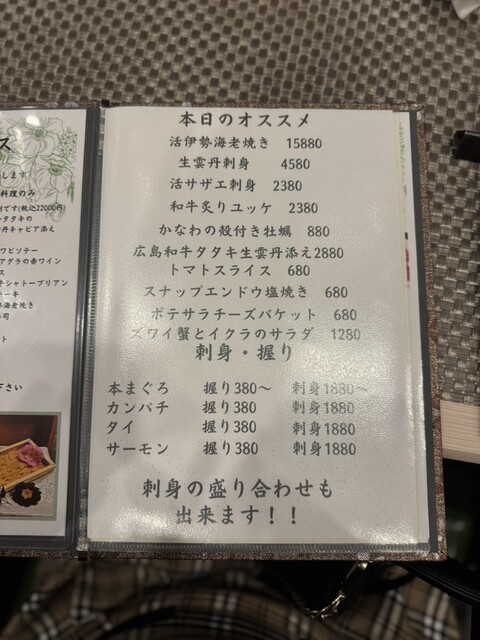 ス
します
料理のみ
別です(税込22000円)
タタキの
丹キャビア添え
ワビソテー
アグラの赤ワイン
ス
キシャトーブリアン
ーキ
海老焼き
司
ト
下さい
本日のオススメ
活伊勢海老焼き 15880
生雲丹刺身 4580
活サザエ刺身 2380
和牛炙りユッケ 2380
かなわの殻付き牡蠣 880
広島和牛タタキ生雲丹添え2880
トマトスライス 680
スナップエンドウ塩焼き 680
ポテサラチーズバケット 680
ズワイ蟹とイクラのサラダ 1280
刺身・握り
本まぐろ 握り380～ 刺身1880～
カンパチ 握り380 刺身1880
タイ 握り380 刺身1880
サーモン 握り380 刺身1880
刺身の盛り合わせも
出来ます！！